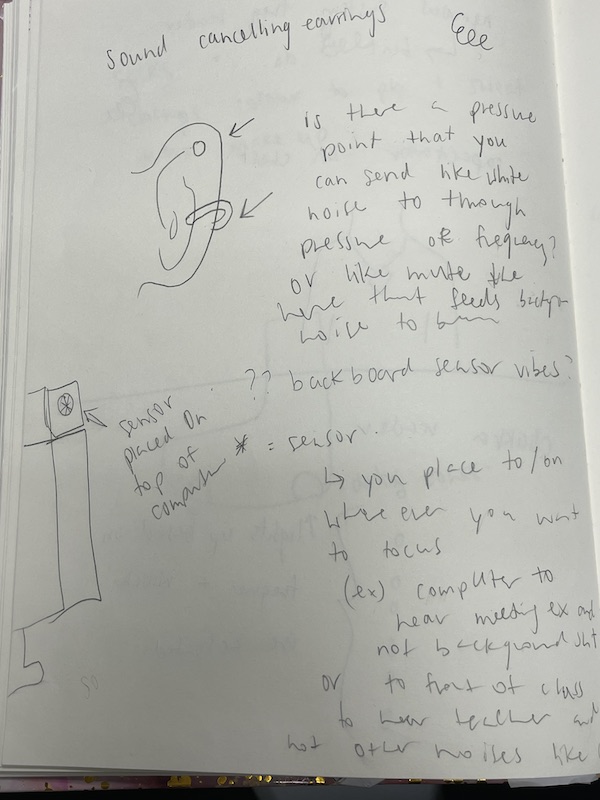 sound cancelling earrings
is there a pressure
point that you
can send like white
noise to through
pressure or frequency?
or like mute the
that feeds
noise to
?? backboard sensor vibes?
sensor
placed on
top of
computer
* = sensor.
↳ you place to/on
where ever you want
to focus
(ex) computer to
hear meeting ex and
not background shit
or to front of class
to hear teacher and
not other noises like